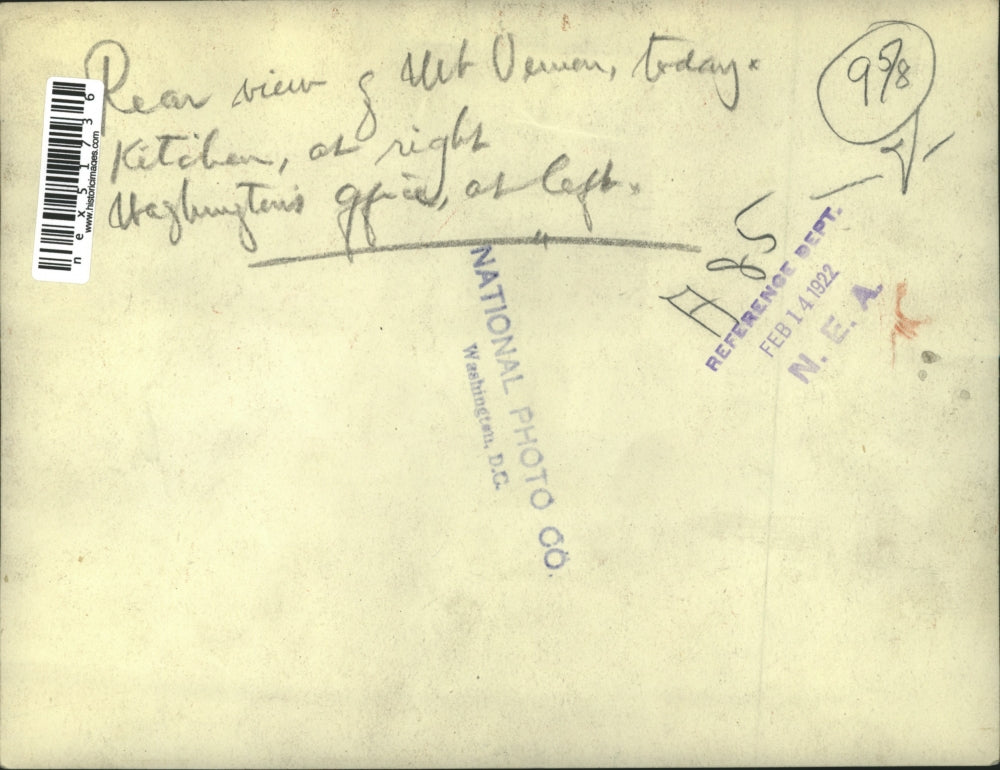 Rear view of Mt Vernon, today.
Kitchen, at right
Washington's office, at left.
9 5/8
H 85
REFERENCE DEPT.
FEB 14 1922
N. E. A.
NATIONAL PHOTO CO.
Washington, D.C.
nex51736
www.historicimages.com